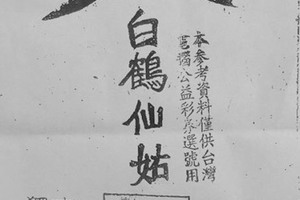 本參考資料僅供台灣
電腦公益彩券選號用
白鶴仙姑